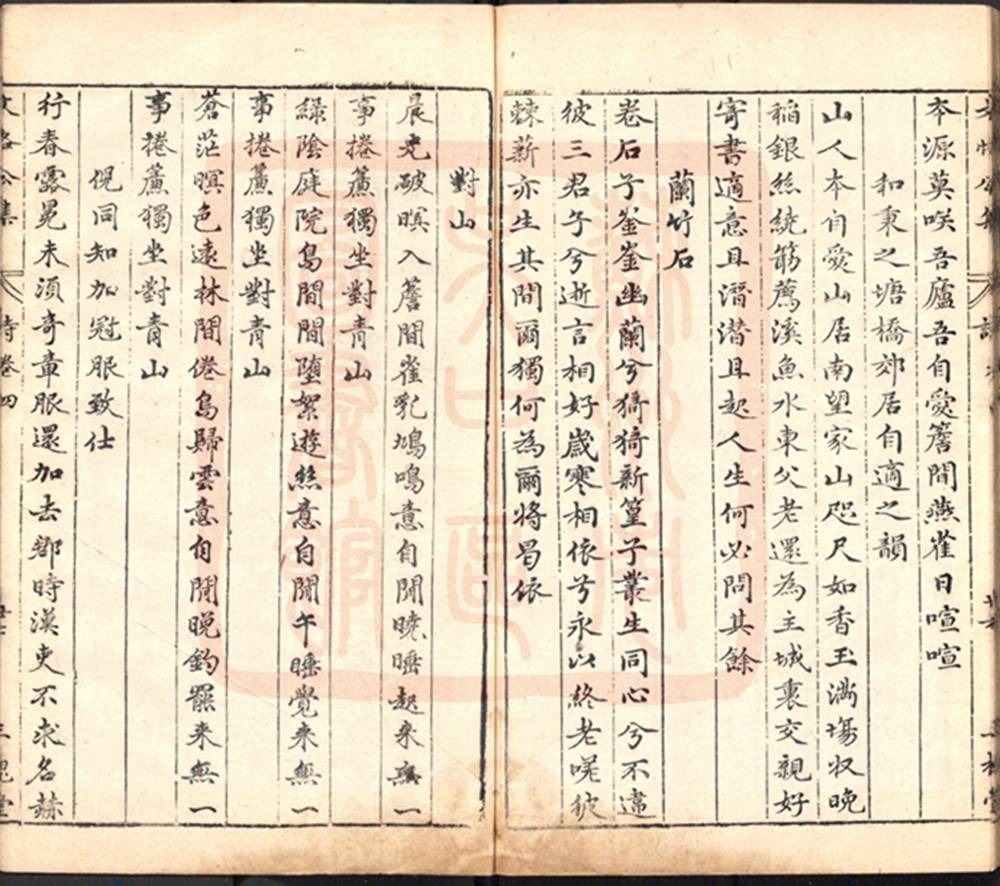 本源莫咲吾廬吾自愛簷間燕雀日喧喧
和秉之塘橋郊居自適之韻
山人本自愛山居南望家山咫尺如香玉滿塲收晚
稻銀絲繞筯薦溪魚水東父老還為主城裏交親好
寄書適意且潛潜且起人生何必問其餘
蘭竹石
卷石子崟崟幽蘭兮猗猗新篁子叢生同心兮不違
彼三君子兮逝言相好歲寒相依兮永以終老嗟彼
棘薪亦生其間爾獨何為爾將曷依
對山
晨光破暝入簷間雀乳鳩鳴意自閒曉睡起来無一
事捲簾獨坐對青山
綠陰庭院鳥間間墮絮遊絲意自閒午睡覺来無一
事捲簾獨坐對青山
蒼茫暝色遠林間倦鳥歸雲意自閒晚釣罷来無一
事捲簾獨坐對青山
倪同知加冠服致仕
行春露冕未須竒章服還加去郡時漢吏不求名赫
詩卷四